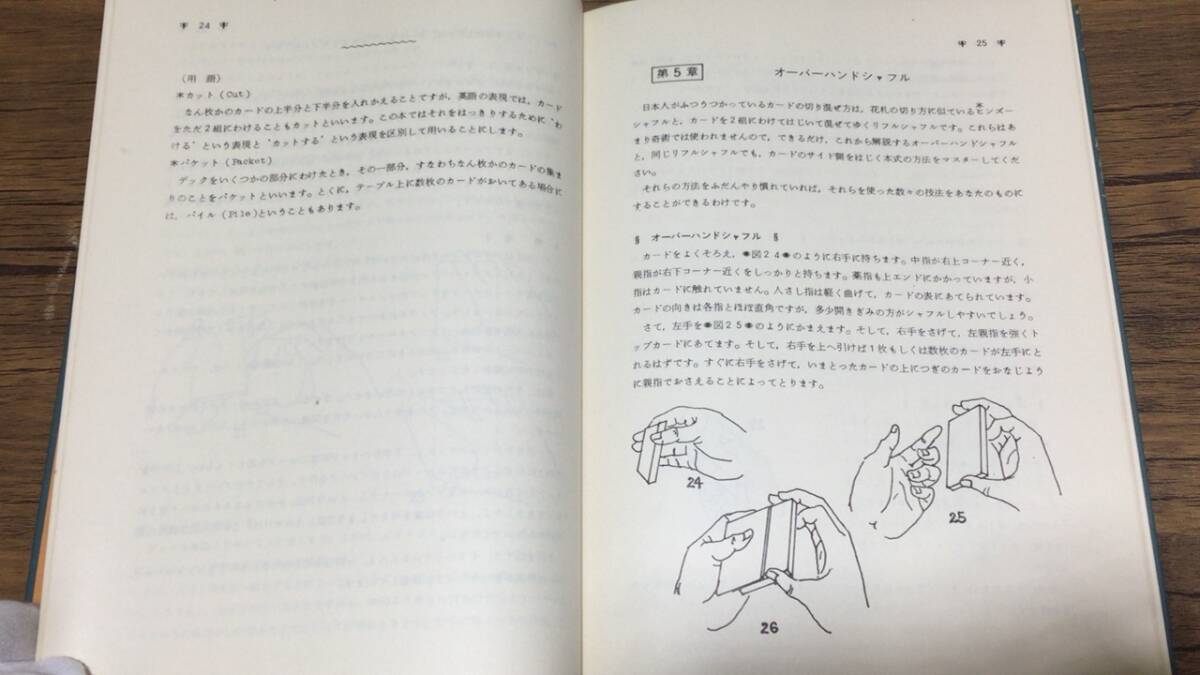 24
(用 語)
*カット (Cut)
なん枚かのカードの上半分と下半分を入れかえることですが, 英語の表現では, カード
をただ2組にわけることもカットといいます。この本ではそれをはっきりするために"わ
ける"という表現と"カットする"という表現を区別して用いることにします。
*パケット (Packet)
デックをいくつかの部分にわけたとき, その一部分, すなわちなん枚かのカードの集ま
りのことをパケットといいます。とくに, テーブル上に数枚のカードがおいてある場合に
は, パイル (Pile)ということもあります。
25
第5章 オーバーハンドシャフル
日本人がふつうつかっているカードの切り混ぜ方は, 花札の切り方に似ている*ヒンズー
シャフルと, カードを2組にわけてはじいて混ぜてゆくリフルシャフルです。これらはあ
まり奇術では使われませんので, できるだけ, これから解説するオーバーハンドシャフル
と, 同じリフルシャフルでも, カードのサイド側をはじく本式の方法をマスターしてくだ
さい。
それらの方法をふだんやり慣れていれば, それらを使った数々の技法をあなたのものに
することができるわけです。
§ オーバーハンドシャフル §
カードをよくそろえ, ◉図24◉のように右手に持ちます。中指が右上コーナー近く,
親指が右下コーナー近くをしっかりと持ちます。薬指も上エンドにかかっていますが, 小
指はカードに触れていません。人さし指は軽く曲げて, カードの表にあてられています。
カードの向きは各指とほぼ直角ですが, 多少開きぎみの方がシャフルしやすいでしょう。
さて, 左手を◉図25◉のようにかまえます。そして, 右手をさげて, 左親指を強くト
ップカードにあてます。そして, 右手を上へ引けば1枚もしくは数枚のカードが左手にと
れるはずです。すぐに右手をさげて, いまとったカードの上につぎのカードをおなじよう
に親指でおさえることによってとります。
24
25
26